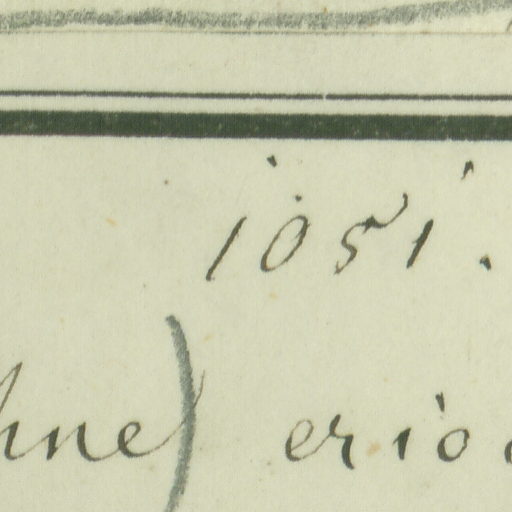 1051.
hne) erio